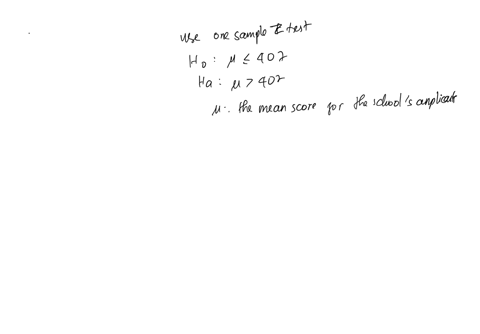 use one sample t test
H0: μ ≤ 402
Ha: μ > 402
μ: the mean score for the school's